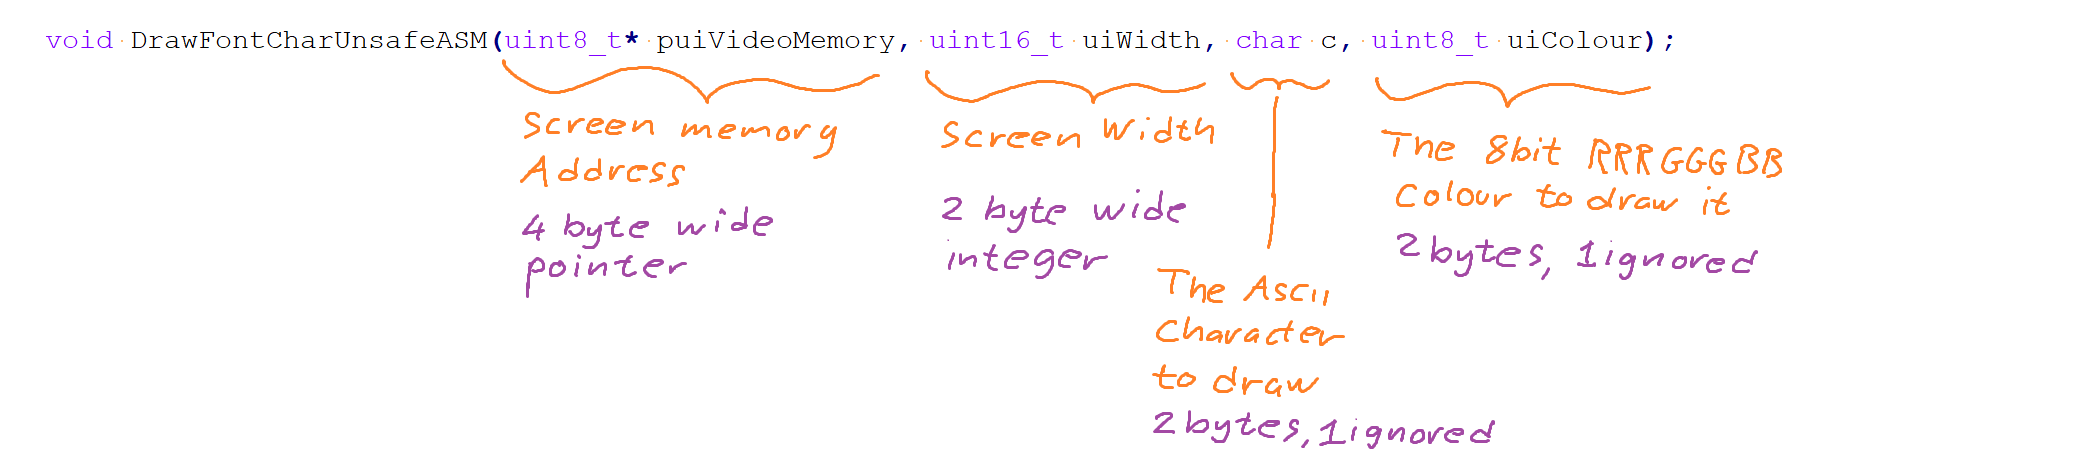 void DrawFontCharUnsafeASM(uint8_t* puiVideoMemory, uint16_t uiWidth, char c, uint8_t uiColour);
Screen memory
Address
4 byte wide
pointer
Screen Width
2 byte wide
integer
The Ascii
Character
to draw
2bytes, 1ignored
The 8bit RRRGGGBB
Colour to draw it
2bytes, 1ignored